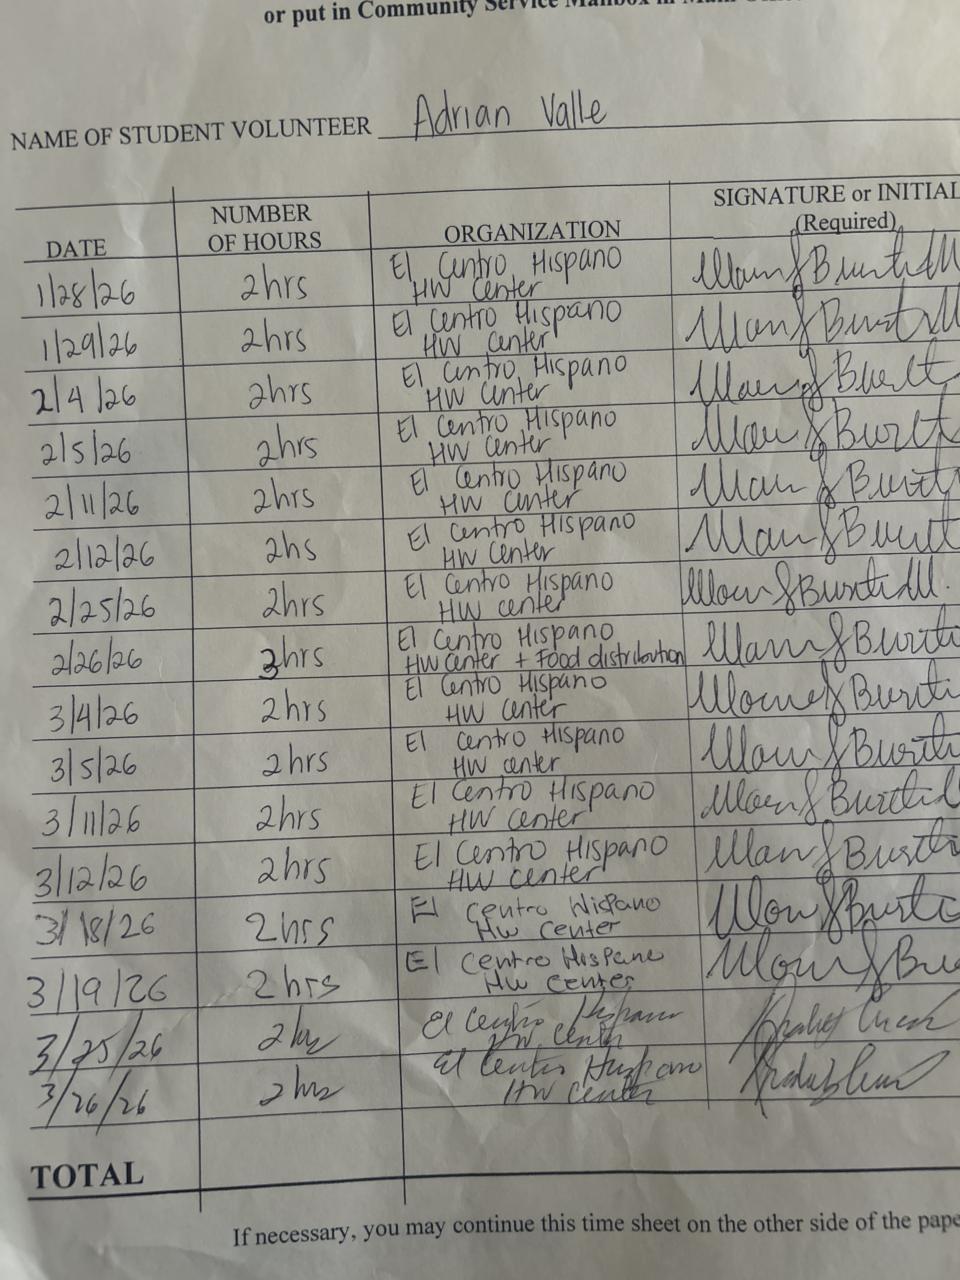 or put in Community Service Mailbox in Main Office
NAME OF STUDENT VOLUNTEER Adrian Valle
DATE NUMBER OF HOURS ORGANIZATION SIGNATURE or INITIAL (Required)
1/28/26 2hrs El Centro Hispano HW Center
1/29/26 2hrs El Centro Hispano HW Center
2/4/26 2hrs El Centro Hispano HW Center
2/5/26 2hrs El Centro Hispano HW Center
2/11/26 2hrs El Centro Hispano HW Center
2/12/26 2hs El Centro Hispano HW Center
2/25/26 2hrs El Centro Hispano HW center
2/26/26 3hrs El Centro Hispano HW Center + Food distribution
3/4/26 2hrs El Centro Hispano HW Center
3/5/26 2hrs El Centro Hispano HW Center
3/11/26 2hrs El Centro Hispano HW Center
3/12/26 2hrs El Centro Hispano HW Center
3/18/26 2hrs El Centro Hispano HW Center
3/19/26 2hrs El Centro Hispano HW Center
3/25/26 2hr El Centro Hispano HW Centr
3/26/26 2hrs El Centro Hispano HW Center
TOTAL
If necessary, you may continue this time sheet on the other side of the pape